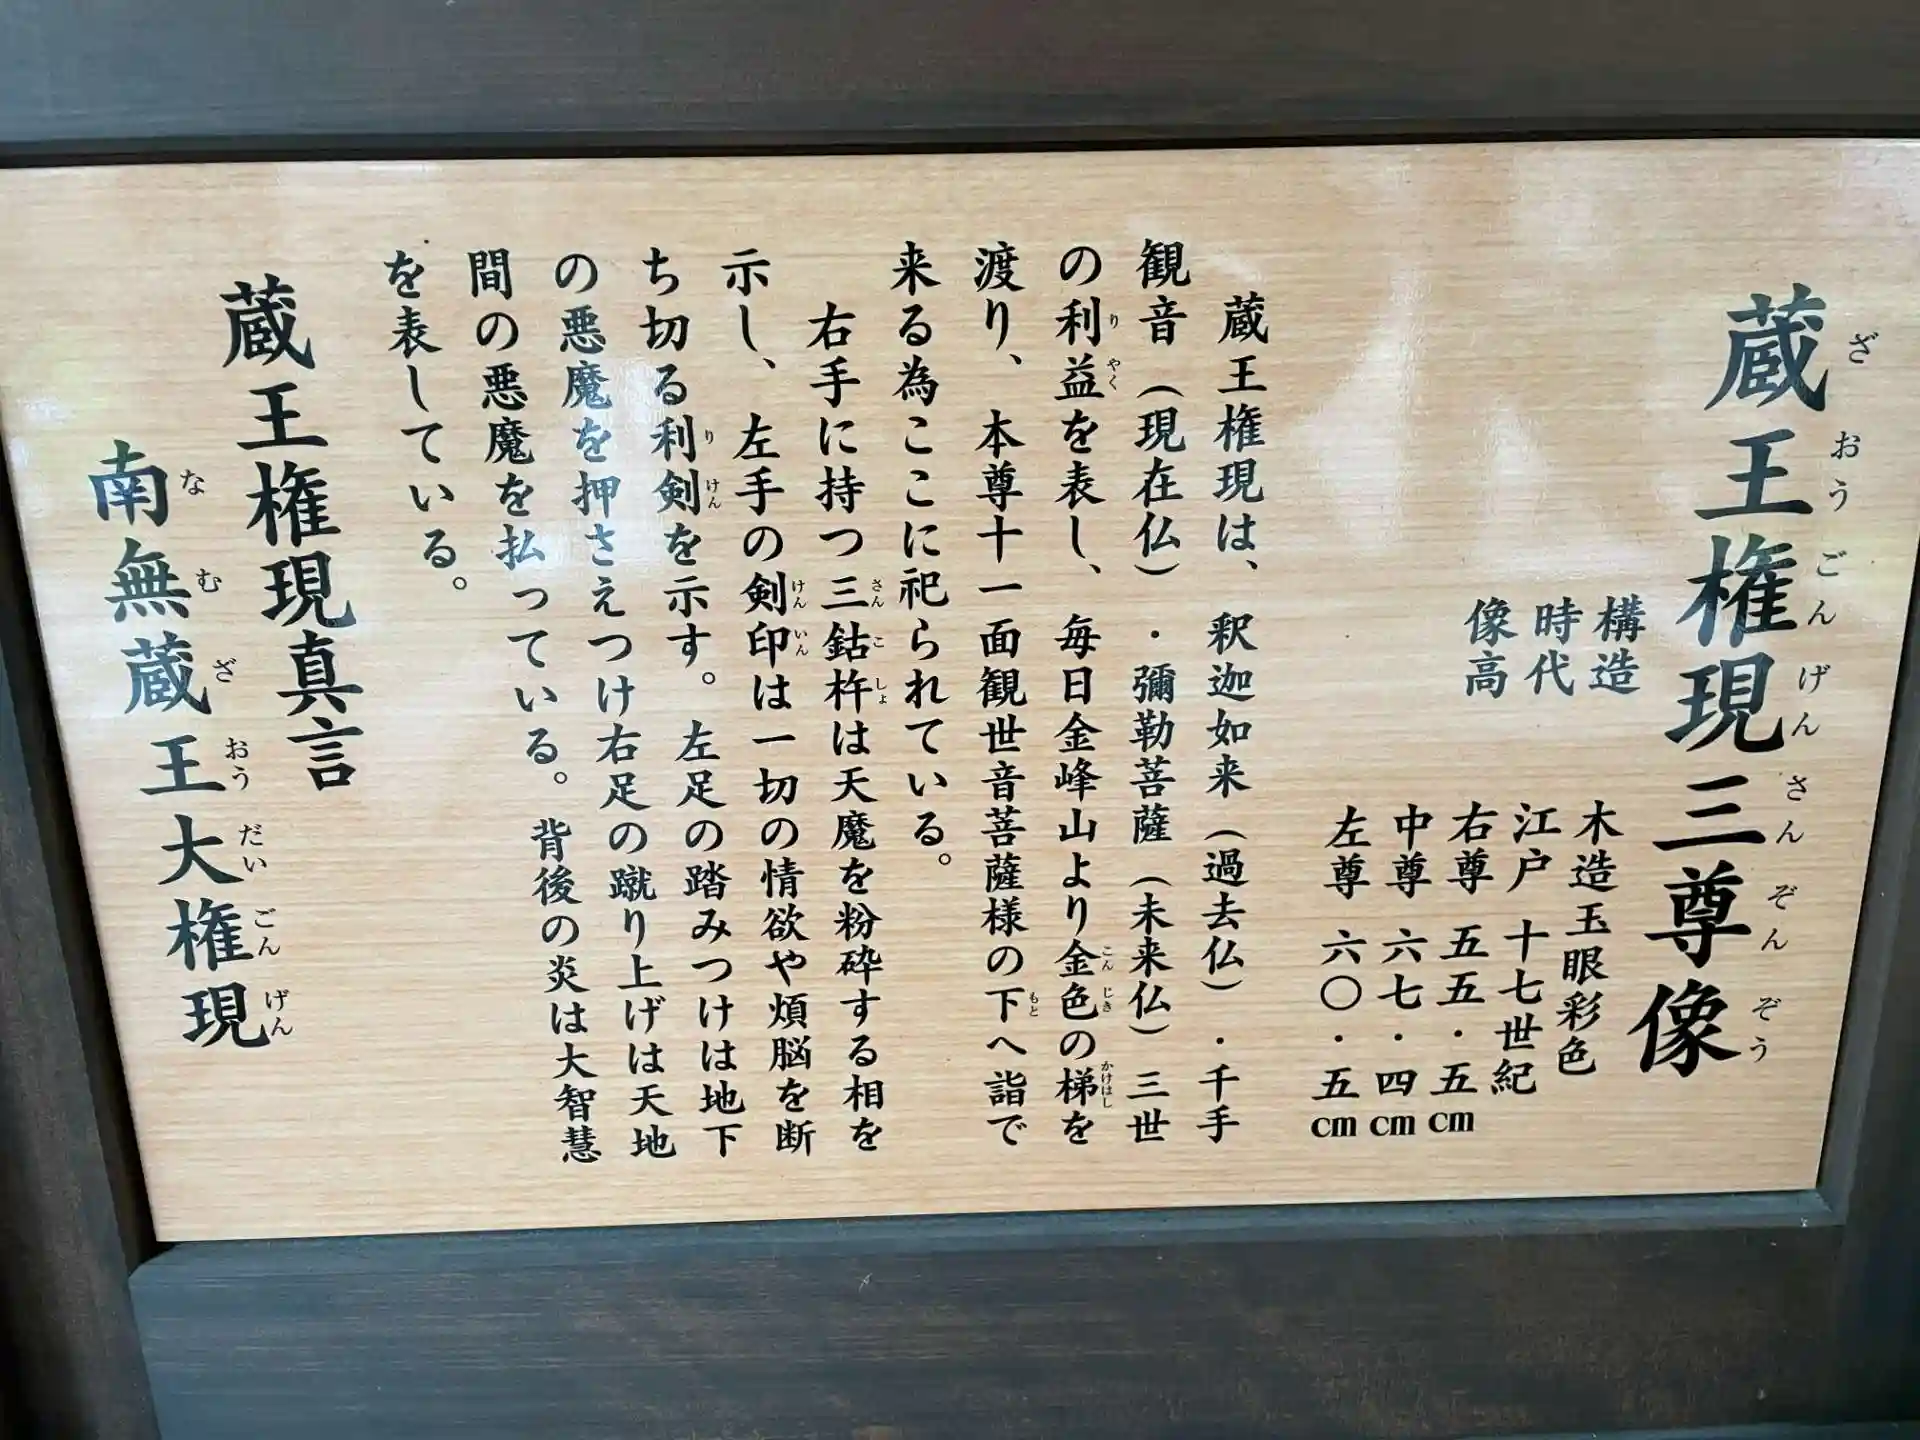 蔵王権現三尊像
ざおうごんげんさんぞんぞう
構造 木造玉眼彩色
時代 江戸 十七世紀
像高 右尊 五五・五cm
中尊 六七・四cm
左尊 六〇・五cm
蔵王権現は、釈迦如来（過去仏）・千手
観音（現在仏）・彌勒菩薩（未来仏）三世
の利益を表し、毎日金峰山より金色の梯を
りやく こんじき かけはし
渡り、本尊十一面観世音菩薩様の下へ詣で
もと
来る為ここに祀られている。
右手に持つ三鈷杵は天魔を粉砕する相を
さんこしょ
示し、左手の剣印は一切の情欲や煩脳を断
けんいん
ち切る利剣を示す。左足の踏みつけは地下
りけん
の悪魔を押さえつけ右足の蹴り上げは天地
間の悪魔を払っている。背後の炎は大智慧
を表している。
蔵王権現真言
南無蔵王大権現
なむざおうだいごんげん